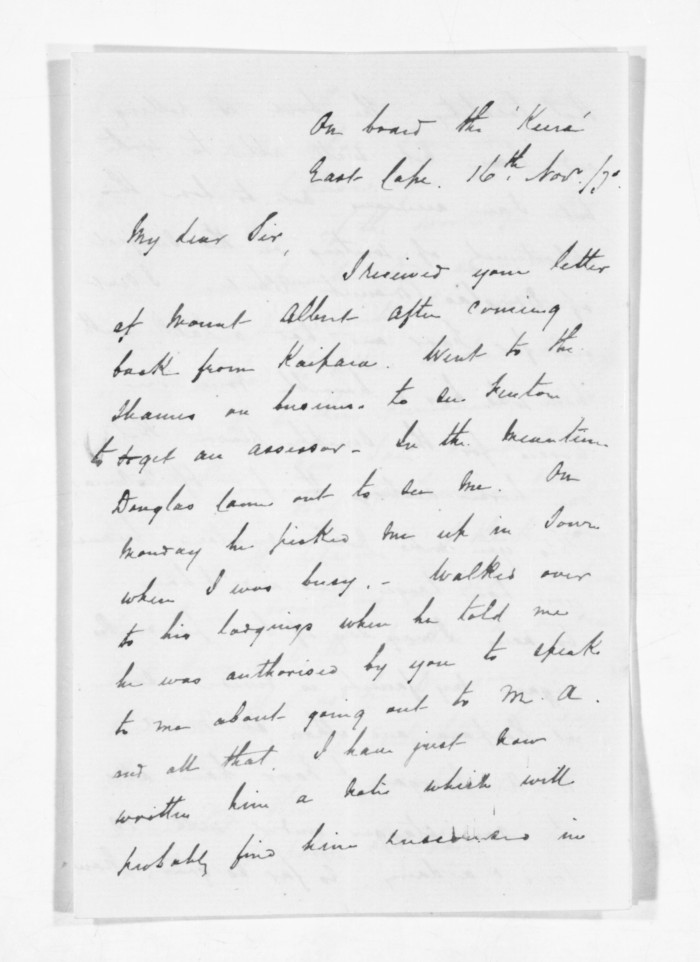 On board the 'Keera'
East Cape. 16th. Novr. /70.
My dear Sir,
I received your letter
at Mount Albert after coming
back from Kaipara. Went to the
Thames on business to see Fenton
to get an assessor - In the meantime
Douglas came out to see me. On
Monday he picked me up in Town
when I was busy. - Walked over
to his lodgings when he told me
he was authorised by you to speak
to me about going out to M. A.
and all that. I have just now
written him a note which will
probably find him in